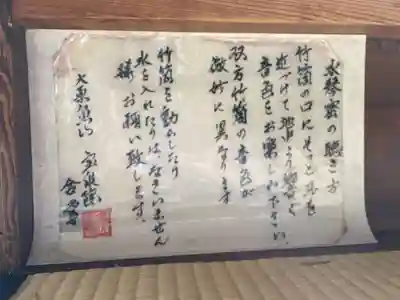 水琴窟の聴き方
竹筒の口にそっと耳を
近づけて地より響く
音色をお楽しみ下さい。
双方竹筒の音色が
微妙に異なります
竹筒を動かしたり
水を入れたりは、なさいません
様、お願い致します。